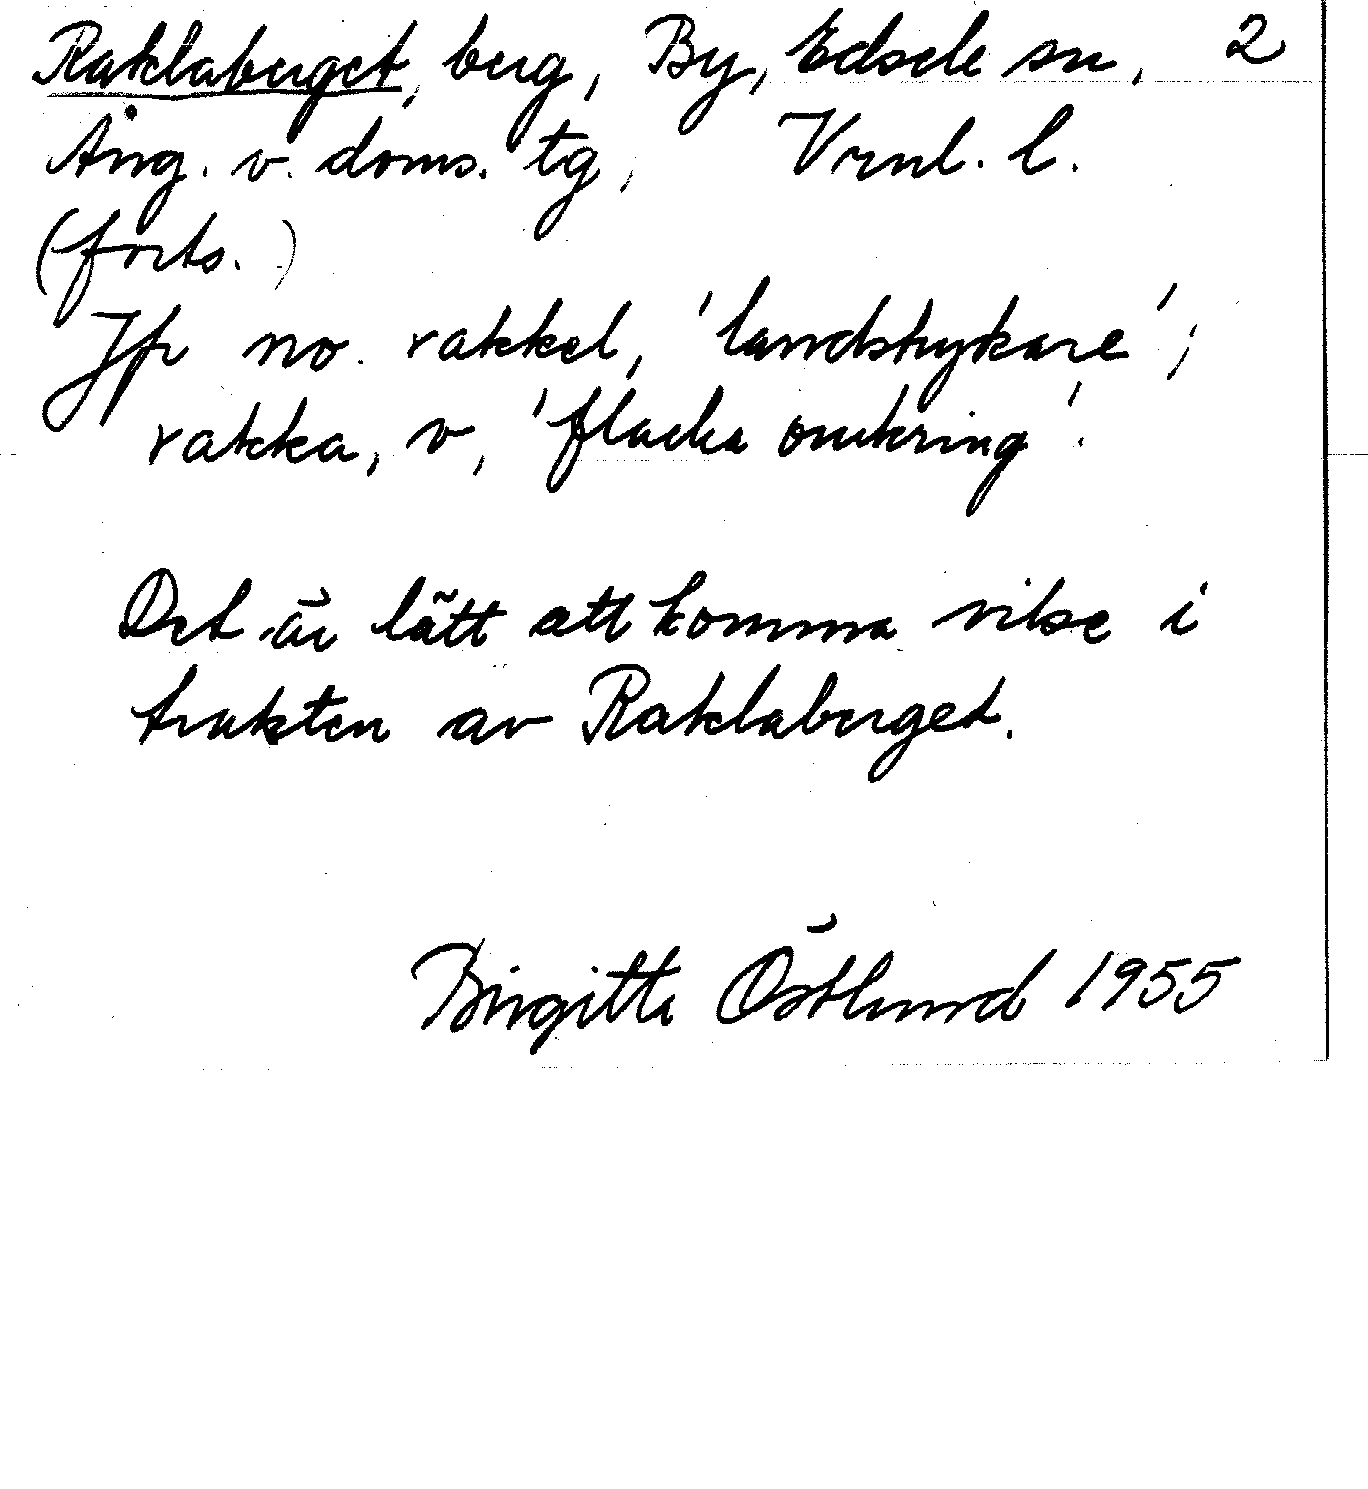 Raklaberget, berg, By, Edsele sn, 2
Ång. v. doms. tg, Vrnl. l.
(forts.)
Jfr no. rakkel, 'landstrykare';
rakka, v, 'flacka omkring'.
Det är lätt att komma vilse i
trakten av Raklaberget.
Birgitta Östlund 1955